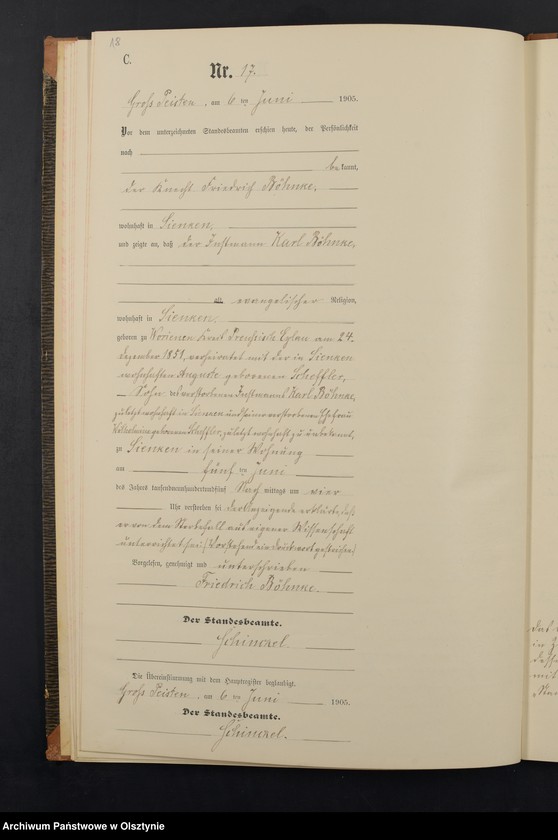 18
C.
Nr. 17.
Gross Peisten, am 6 ten Juni 1905.
Vor dem unterzeichneten Standesbeamten erschien heute, der Persönlichkeit
nach
be kannt,
der Knecht Friedrich Böhnke,
wohnhaft in Sienken,
und zeigte an, daß der Instmann Karl Böhnke,
alt, evangelischer Religion,
wohnhaft in Sienken,
geboren zu Worienen Kreis Preußisch Eylau am 24.
Dezember 1851, verheiratet mit der in Sienken
wohnhaften Auguste geborenen Scheffler,
Sohn des verstorbenen Instmanns Karl Böhnke,
zuletzt wohnhaft in und seiner verstorbenen Ehefrau
geborenen Scheffler, zuletzt wohnhaft zu unbekannt,
zu Sienken in seiner Wohnung
am fünf ten Juni
des Jahres tausendneunhundertundfünf Nach mittags um vier
Uhr verstorben sei. Der Anzeigende erklärte, daß
er von dem Sterbefall aus eigener Wissenschaft
unterrichtet sei. (Vorstehend ein Druckwort gestrichen)
Vorgelesen, genehmigt und unterschrieben
Friedrich Böhnke.
Der Standesbeamte.
Schinckel.
Die Übereinstimmung mit dem Hauptregister beglaubigt.
Gross Peisten, am 6 ten Juni 1905.
Der Standesbeamte.
Schinckel.
Archiwum Państwowe w Olsztynie